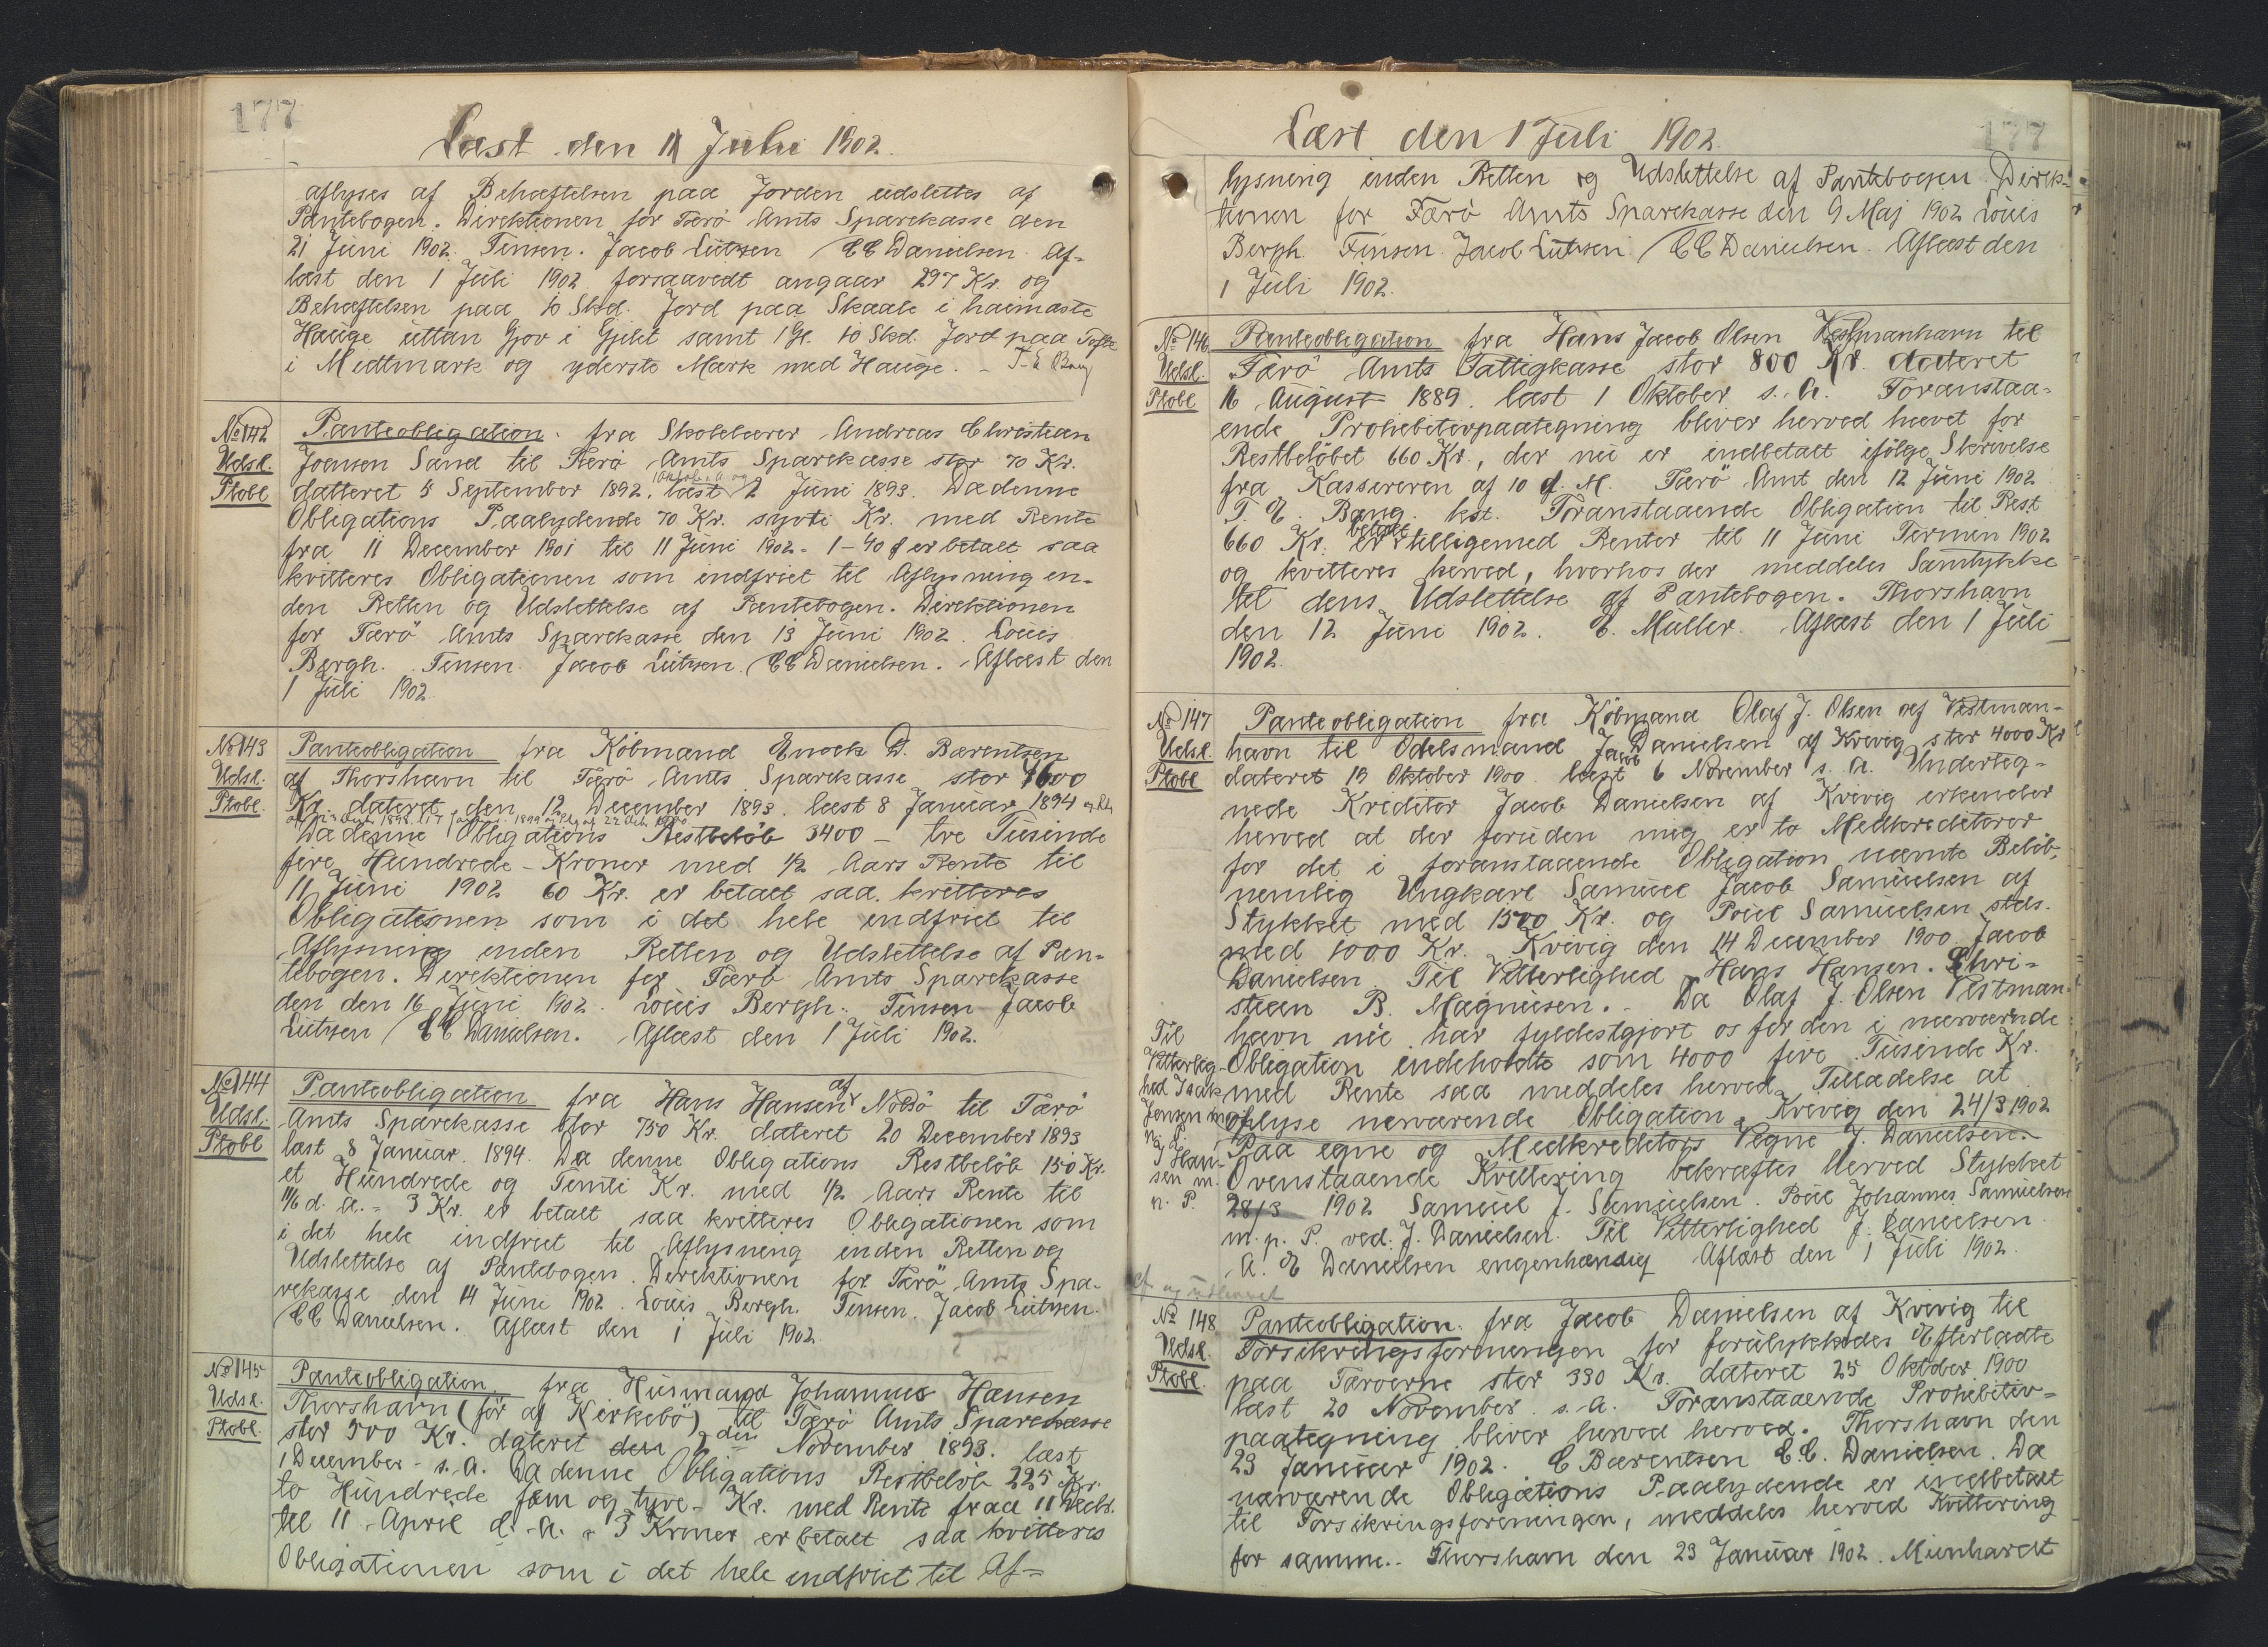 177
Læst den 1 Juli 1902.
aflyses af Behæftelsen paa Jorden udslettes af
Pantebogen. Direktionen for Færö Amts Sparekasse den
21 Juni 1902. Finsen. Jacob Lützen / CC Danielsen. Af-
læst den 1 Juli 1902 forsaavidt angaar 297 Kr. og
Behæftelsen paa 10 Skd. Jord paa Skaale i haimaste
Hauge uttan Gjov i Gjilet samt 1 Gl. 10 Skd. Jord paa Tofte
i Midtmark og yderste Mark med Hauge. -
No 142
Udsl.
Ptobl
Panteobligation fra Skolelærer Andreas Christian
Joensen Sand til Færö Amts Sparekasse stor 70 Kr.
datteret 5 September 1892. læst 2 Juni 1893. Da denne
Obligations Paalydende 70 Kr. syvti Kr. med Rente
fra 11 December 1901 til 11 Juni 1902 - 1-40 ø er betalt saa
kvitteres Obligationen som indfriet til Aflysning in-
den Retten og Udslettelse af Pantebogen. Direktionen
for Færö Amts Sparekasse den 13 Juni 1902. Louis
Bergh. Finsen. Jacob Lützen. / CC Danielsen. Aflæst den
1 Juli 1902.
No 143
Udsl.
Ptobl.
Panteobligation fra Köbmand Enock D. Bærentsen
af Thorshavn til Færö Amts Sparekasse stor
Kr. dateret den 12 December 1893. læst 8 Januar 1894
Da denne Obligations Restbelöb 3400 - tre Tusinde
fire Hundrede - Kroner med 1/2 Aars Rente til
11 Juni 1902 60 Kr. er betalt saa kvitteres
Obligationen som i det hele indfriet til
Aflysning inden Retten og Udslettelse af Pan-
tebogen. Direktionen for Færö Amts Sparekasse
den den 16 Juni 1902. Louis Bergh. Finsen Jacob
Lützen / CC Danielsen. Aflæst den 1 Juli 1902.
No 144
Udsl.
Ptobl
Panteobligation fra Hans Hansen af Nolsö til Færö
Amts Sparekasse stor 750 Kr. dateret 20 December 1893
læst 8 Januar 1894. Da denne Obligations Restbelöb 150 Kr.
et Hundrede og Femti Kr. med 1/2 Aars Rente til
11/6 d. A. = 3 Kr. er betalt saa kvitteres Obligationen som
i det hele indfriet til Aflysning inden Retten og
Udslettelse af Pantebogen. Direktionen for Færö Amts Spa-
rekasse den 14 Juni 1902. Louis Bergh. Finsen. Jacob Lützen.
/ CC Danielsen. Aflæst den 1 Juli 1902.
No 145
Udsl.
Ptobl.
Panteobligation fra Husmand Johannes Hansen
Thorshavn (för af Kirkebö) til Færö Amts Sparekasse
stor 500 Kr. dateret den November 1893. læst
1 December s. A. Da denne Obligations Restbelöb 225 Kr.
to Hundrede fem og tyve - Kr. med Rente fraa 11 Decbr.
til 11 April d. A. = 3 Kroner er betalt saa kvitteres
Obligationen som i det hele indfriet til Af-
177
Læst den 1 Juli 1902.
lysning inden Retten og Udslettelse af Pantebogen Direk-
tionen for Færö Amts Sparekasse den 9 Maj 1902 Louis
Bergh. Finsen. Jacob Lützen / CC Danielsen. Aflæst den
1 Juli 1902.
No 146
Udsl.
Ptobl
Panteobligation fra Hans Jacob Olsen Vestmanhavn til
Færö Amts Fattigkasse stor 800 Kr. dateret
16 August 1889. læst 1 Oktober s. A. Foranstaa-
ende Prohibitivpaategning bliver herved hævet for
Restbelöbet 660 Kr., der nu er indbetalt ifölge Skrivelse
fra Kassereren af 10 d. M. Færö Amt den 12 Juni 1902
T. E. Bang. kst. Foranstaaende Obligation til Rest
660 Kr. er betalt tilligemed Renter til 11 Juni Termin 1902
og kvitteres herved, hvorhos der meddeles Samtykke
til dens Udslettelse af Pantebogen. Thorshavn
den 12 Juni 1902. E. Müller. Aflæst den 1 Juli
1902.
No 147
Udsl.
Ptobl
Panteobligation fra Köbmand Olaf J. Olsen af Vestman-
havn til Odelsmand Jacob Danielsen af Kvivig stor 4000 Kr
dateret 19 Oktober 1900. læst 6 November s. A. Underteg-
nede Kreditor Jacob Danielsen af Kvivig erkender
herved at der foruden mig er to Medkreditorer
for det i foranstaaende Obligation nævnte Belöb,
nemlig Ungkarl Samuel Jacob Samuelsen af
Stykket med 1500 Kr. og Poul Samuelsen stds.
med 1000 Kr. Kvivig den 14 December 1900 Jacob
Danielsen Til Vitterlighed Hans Hansen. Chri-
stian B. Magnusen. - Da Olaf J. Olsen Vestman-
havn nu har fyldestgjort os for den i nærværnde
Obligation indeholdte som 4000 fire Tusinde Kr.
med Rente saa meddeles herved Tilladelse at
aflyse nærværende Obligation. Kvivig den 24/3 1902
Paa egne og Medkreditors Vegne J. Danielsen.
Ovenstaaende Kvittering bekræftes herved Stykket
28/3 1902 Samuel J. Samuelsen. Poul Johannes Samuelsen
m. p. P. ved. J. Danielsen. Til Vitterlighed J. Danielsen.
A. E Danielsen engenhændig Aflæst den 1 Juli 1902.
Til
Vitterlig-
hed Isak
Jensen
J Han-
sen m.
n. P.
No 148
Udsl.
Ptobl.
Panteobligation. fra Jacob Danielsen af Kvivig til
Forsikringsforeningen for forulykkedes Efterladte
paa Færoerne stor 330 Kr. dateret 25 Oktober 1900
læst 20 November s. A. Foranstaaende Prohibitiv-
paategning bliver herved hervod. Thorshavn den
23 Januar 1902. C Bærentsen C.C. Danielsen. Da
nærværende Obligations Paalydende er indbetalt
til Forsikringsforeningen, meddeles herved Kvittering
for samme. - Thorshavn den 23 Januar 1902. Mienhardt